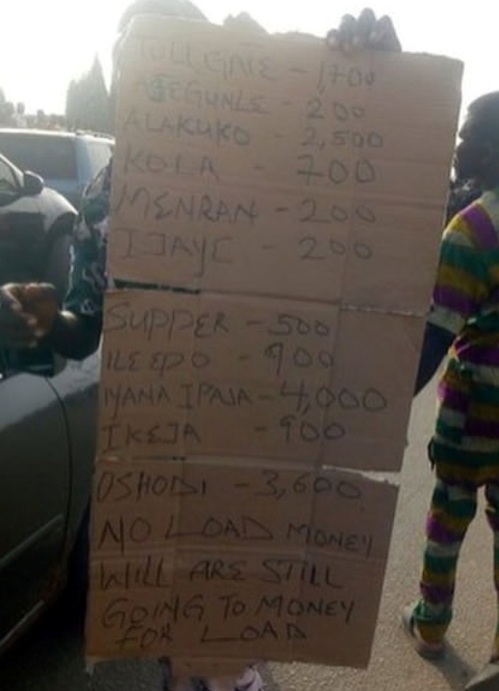 TOLLGATE - 1,700
AGEGUNLE - 200
ALAKUKO - 2,500
KOLA - 700
MENRAN - 200
IJAYE - 200
SUPPER - 500
ILE EPO - 900
IYANA IPAJA - 4,000
IKEJA - 900
OSHODI - 3,600
NO LOAD MONEY
WILL ARE STILL
GOING TO MONEY
FOR LOAD